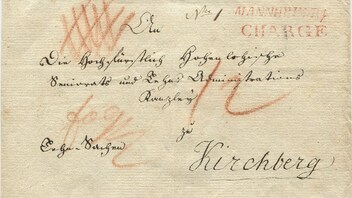 An
No 1
MANNHEIM
CHARGE
Die Hochfürstlich Hohenlohische
Seniorats und Lehns Administrations
Kanzley
zu
Lehn-Sachen
Kirchberg